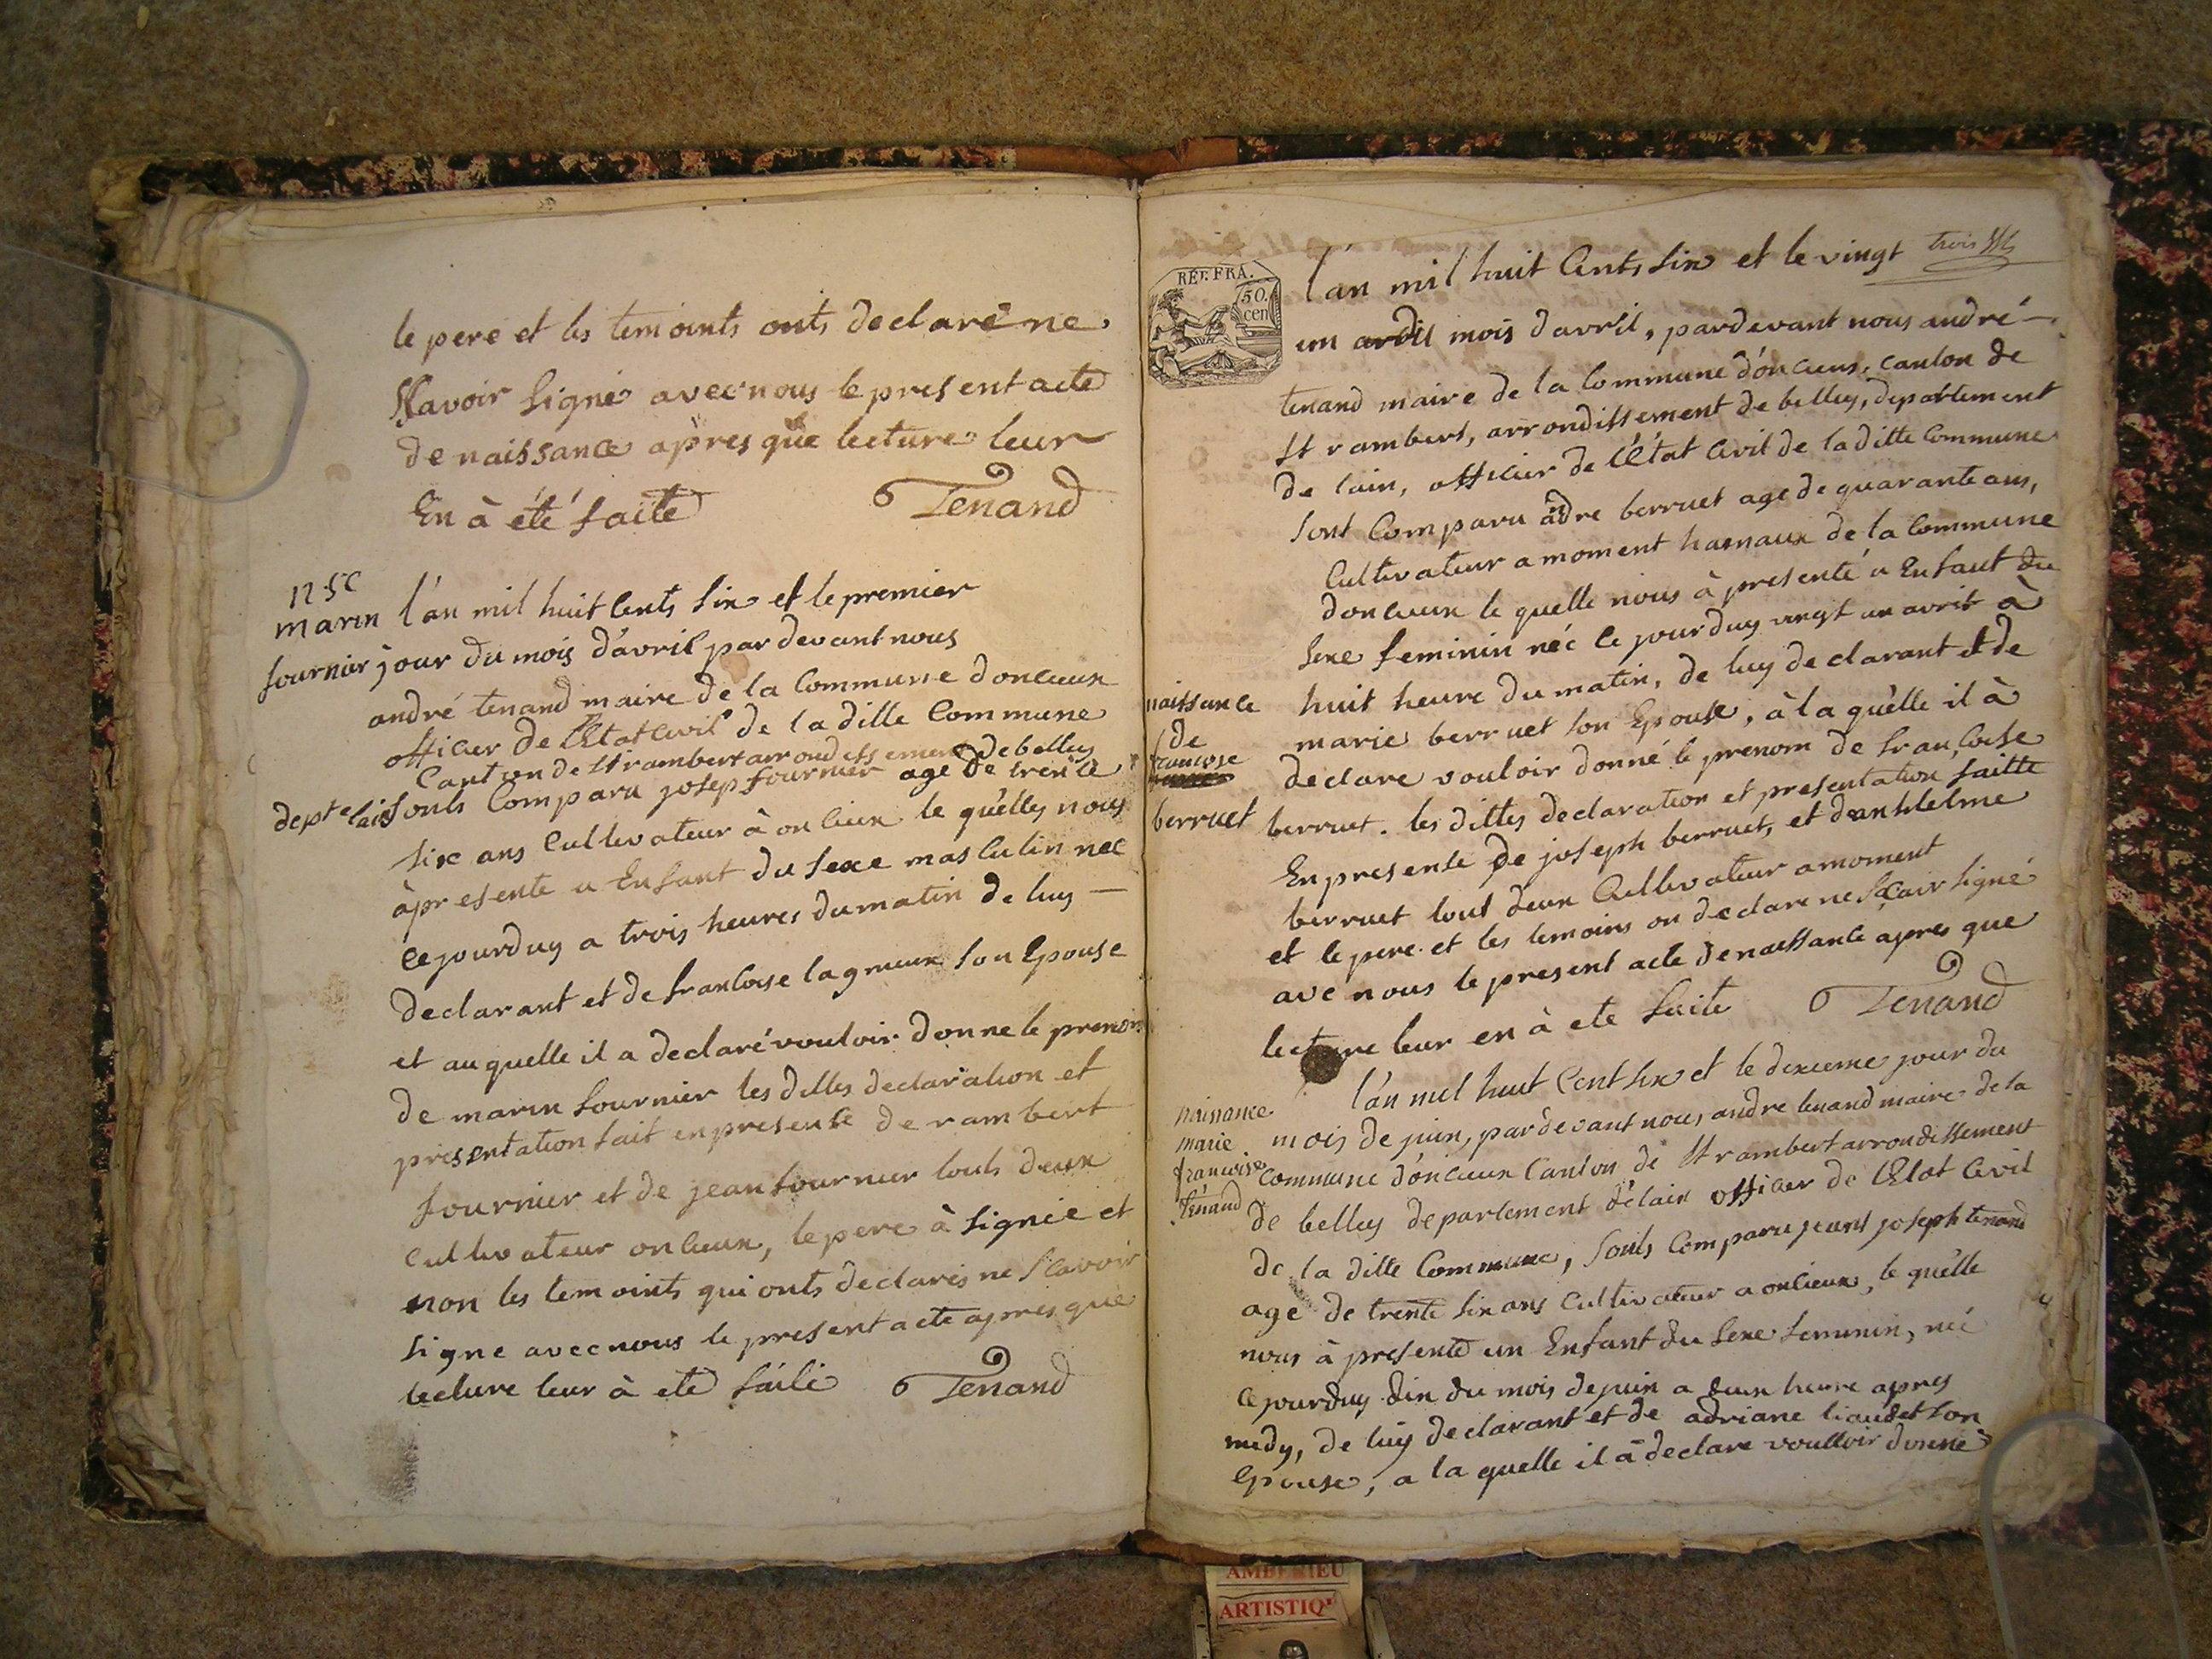 le pere et les temoints onts declaré ne
savoir signé avec nous le present acte
de naissance apres que lecture leur
En à été faite Tenand
marin
fournier
l'an mil huit Cents six et le premier
jour du mois d'avril par devant nous
andré tenand maire de la Commune doncieux
officier de l'Etat civil de la ditte Commune
Canton de St rambert arrondissement de belley
dept de lain sonts Comparu josep fournier age de trente
six ans Cultivateur à oncieux le quelles nous
à presente u Enfant du sexe masculin nee
cejourduy a trois heures du matin de luy —
declarant et de francoise lagneux son Epouse
et au quelle il a declaré vouloir donne le prenom
de marin fournier les dittes declaration et
presentation fait en presente de rambert
fournier et de jean fournier touts deux
cultivateur oncieux, le pere à signée et
non les temoints qui onts declarés ne scavoir
signe avec nous le present acte apres que
lecture leur à ete faite Tenand
REP. FRA.
50.
cen
l'an mil huit Cents six et le vingt
un du mois d'avril, pardevant nous andré —
tenand maire de la Commune d'oncieux, canton de
St rambert, arrondissement de belley, departement
de lain, officier de l'Etat Civil de la ditte Commune
sont Comparu andre berruet age de quarante ans,
Cultivateur a moment hamaux de la Commune
doncieux le quelle nous à presenté u Enfant du
sexe feminin néé ce jourduy vingt un avril à
huit heure du matin, de luy declarant et de
marie berruet son Epouse, à la quelle il à
declare vouloir donné le prenom de francoise
berruet. les dittes declaration et presentation faitte
En presente de joseph berruet, et danthlelme
berruet tout deux Cultivateur a moment
et le pere et les temoins on declare ne scair signé
avé nous le present acte de naissance apres que
lecture leur en à ete faite Tenand
naissance
de
francoise
berruet
naissance
marie
francoise
tenand
l'an mil huit Cent six et le dixieme jour du
mois de juin, pardevant nous andre tenand maire de la
Commune d'oncieux Canton de St rambert arrondissement
de belley departement de lain officier de l'Etat Civil
de la ditte Commune, sonts Comparu jeant joseph tenand
age de trente six ans Cultivateur a oncieux, le quelle
nous à presenté un Enfant du sexe feminin, néé
ce jourduy dix du mois de juin a deux heure apres
midy, de luy declarant et de adriane liaudet son
Epouse, a la quelle il à declare voulloir donné
AMBERIEU
ARTISTIQ